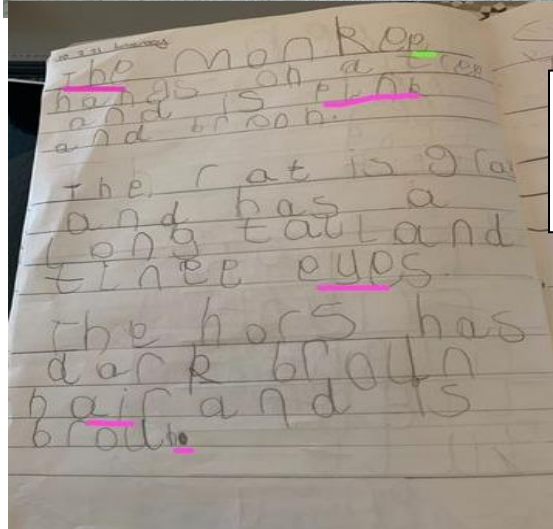 The monkee
hangs on a tree
and is pinb
and broon.
The rat is gra
and has a
long tail and
tinee eyes.
The hors has
dark broun
hair and is
broun.